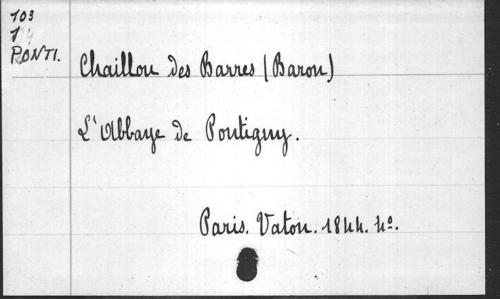 103
1
PONTI.
Chaillou des Barres (Baron)
L'Abbaye de Pontigny.
Paris. Vaton. 1844. 4º.